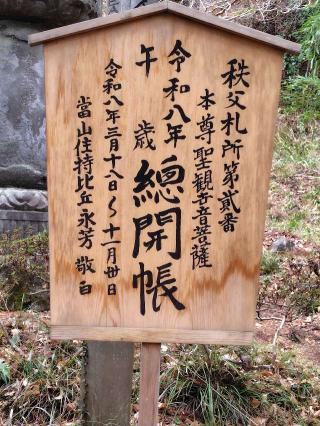 秩父札所第貳番
本尊聖観世音菩薩
令和八年
午歳總開帳
令和八年三月十八日〜十一月卅日
當山住持比丘永芳敬白